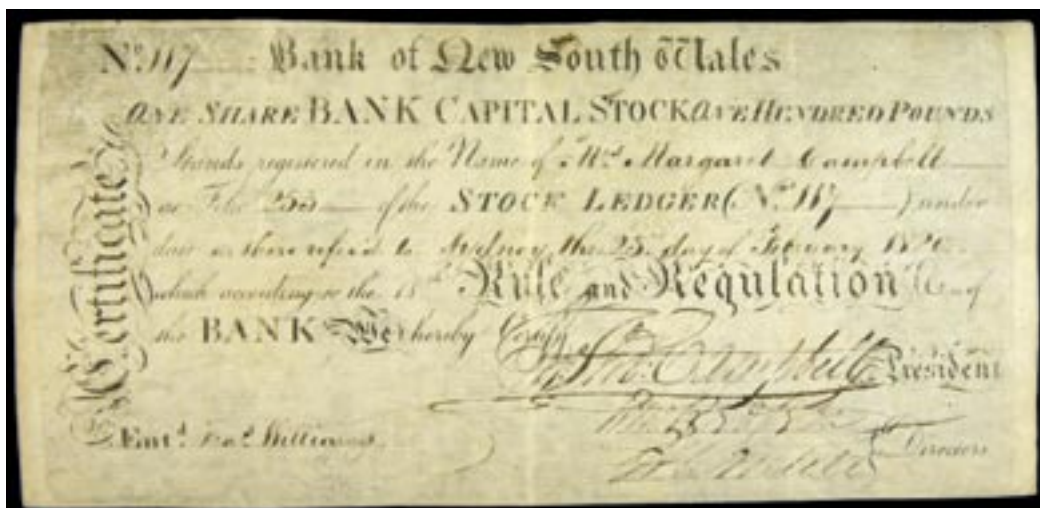 Certificate
No. 117 Bank of New South Wales
ONE SHARE BANK CAPITAL STOCK ONE HUNDRED POUNDS
Stands registered in the Name of Mrs. Margaret Campbell
Folio 253 of the STOCK LEDGER (No. 117) under
date as there refered to Sydney, the 25 day of February
which according to the 18th Rule and Regulation of
the BANK We hereby Certify
Campbell President
Entd. Fras. Williams
Directors